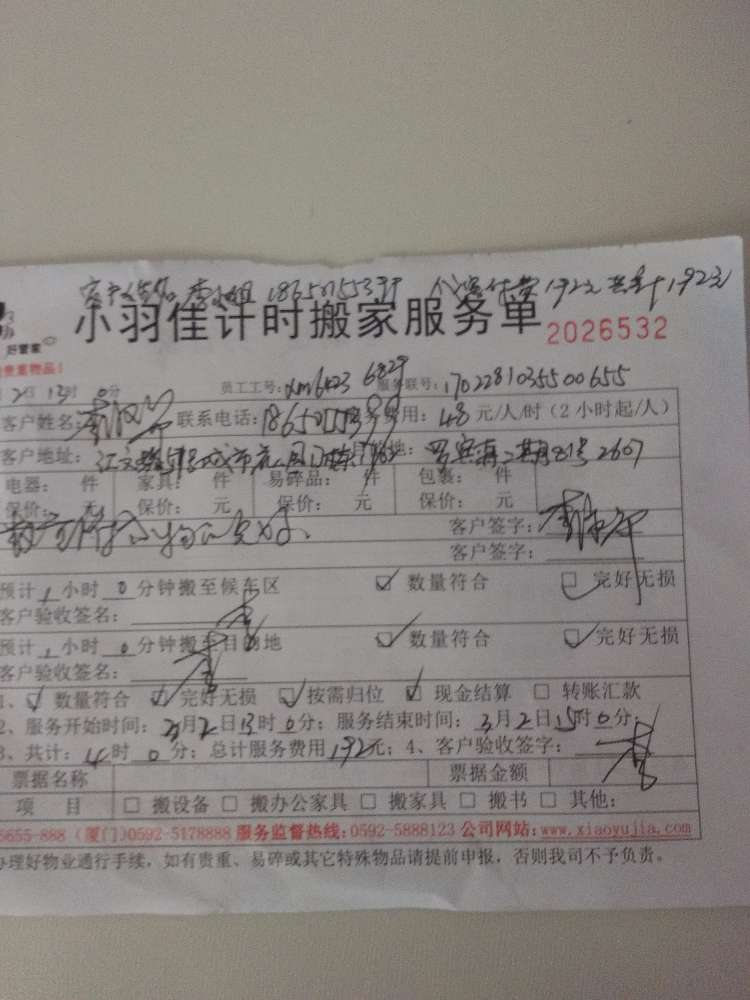 李小姐 代客付费192元 共计192元
小羽佳计时搬家服务单 2026532
好管家
贵重物品!
2日13时0分 员工工号:xm6423 6829 服务联号:1702281035500655
客户姓名: 联系电话: 服务费用:48元/人/时(2小时起/人)
客户地址: 城市花园 目的地: 二期 2607
电器: 件 家具: 件 易碎品: 件 包裹: 件
保价: 元 保价: 元 保价: 元 保价: 元
客户签字:
客户签字:
预计1小时0分钟搬至候车区 ☑数量符合 ☑完好无损
客户验收签名:李
预计1小时0分钟搬至目的地 ☑数量符合 ☑完好无损
客户验收签名:李
1、☑数量符合 ☑完好无损 ☑按需归位 ☑现金结算 □转账汇款
2、服务开始时间:3月2日13时0分;服务结束时间:3月2日15时0分;
3、共计:4时0分;总计服务费用192元;4、客户验收签字:李
票据名称 票据金额
项目 □搬设备 □搬办公家具 □搬家具 □搬书 □其他:
5655-888 (厦门)0592-5178888 服务监督热线:0592-5888123 公司网站:www.xiaoyujia.com
办理好物业通行手续,如有贵重、易碎或其它特殊物品请提前申报,否则我司不予负责。